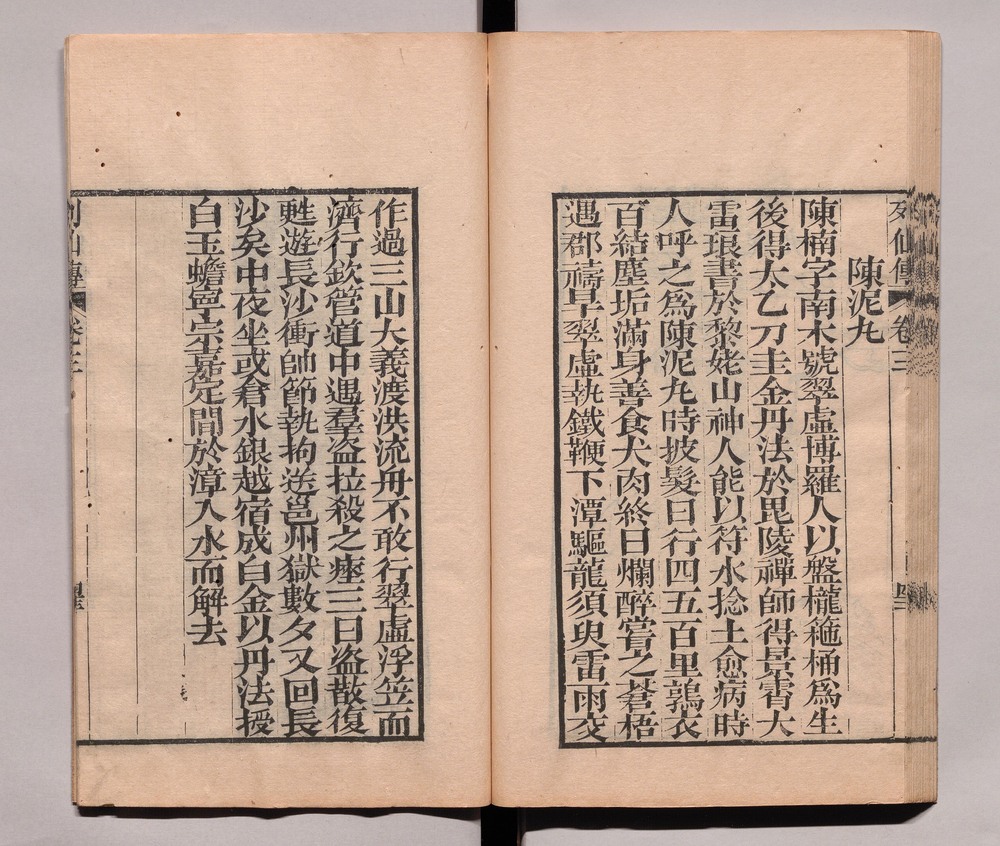 列仙傳 卷三
陳泥丸
陳楠字南木號翠虛博羅人以盤櫳箍桶爲生
後得太乙刀圭金丹法於毘陵禪師得景霄大
雷琅書於黎姥山神人能以符水捻土愈病時
人呼之爲陳泥丸時披髮日行四五百里鶉衣
百結塵垢滿身善食犬肉終日爛醉嘗之蒼梧
遇郡禱旱翠虛執鐵鞭下潭驅龍須臾雷雨交
作過三山大義渡洪流舟不敢行翠虛浮笠而
濟行欽管道中遇羣盗拉殺之瘞三日盗散復
甦遊長沙衝帥節執拘送邕州獄數夕又回長
沙矣中夜坐或倉水銀越宿成白金以丹法授
白玉蟾寧宗嘉定間於漳入水而解去
列仙傳 卷三